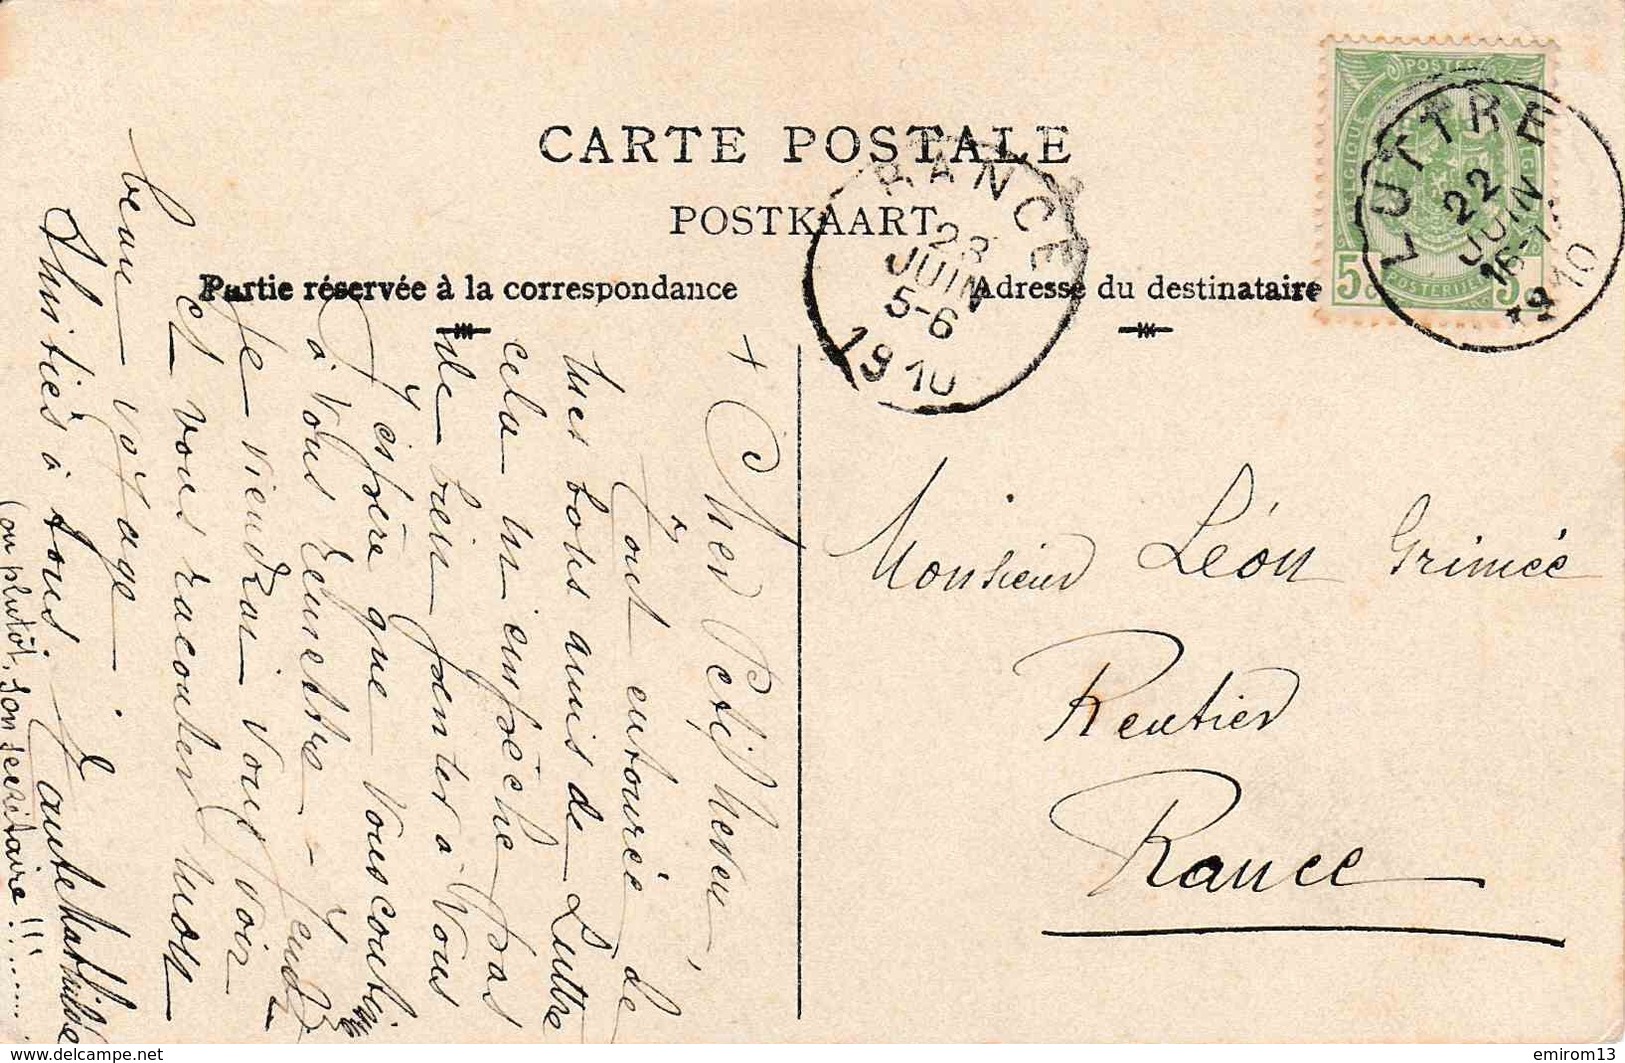 CARTE POSTALE
POSTKAART
Partie réservée à la correspondance
Adresse du destinataire
POSTES
BELGIQUE
POSTERIJEN
5c
5c
LUTTRE
22
JUIN
16-17
1910
RANCE
23
JUIN
5-6
1910
+ Cher Petit Neveu,
Tout entourée de
mes bons amis de Luttre
cela m'empêche pas
de bien penser à vous
J'espère que vous continu
à vous remettre - Jeudi
je viendrai vous voir
et vous raconter mon
beau voyage.
Amitiés à tous, Tante Mathilde
(ou plutôt, son secrétaire!!!......
Monsieur Léon Grimée
Rentier
Rance
delcampe.net
emirom13